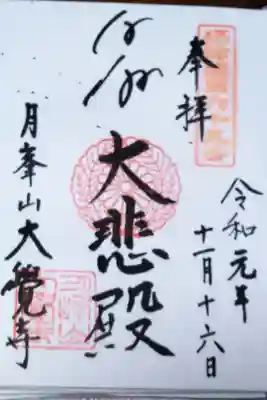 奉拝
令和元年
十一月十六日
大悲殿
月峯山大覺寺